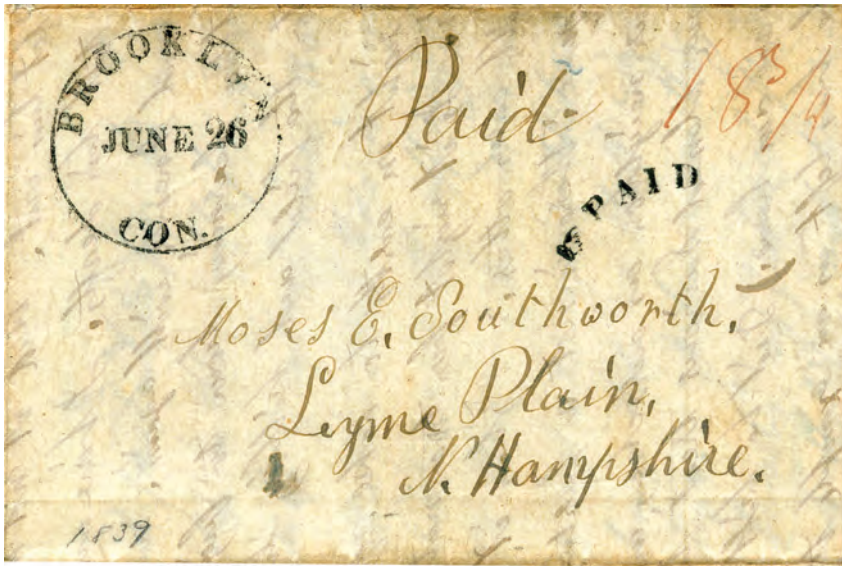 BROOKLYN
JUNE 26
CON.
Paid.
18 3/4
PAID
Moses E. Southworth,
Lyme Plain,
N. Hampshire.
1839